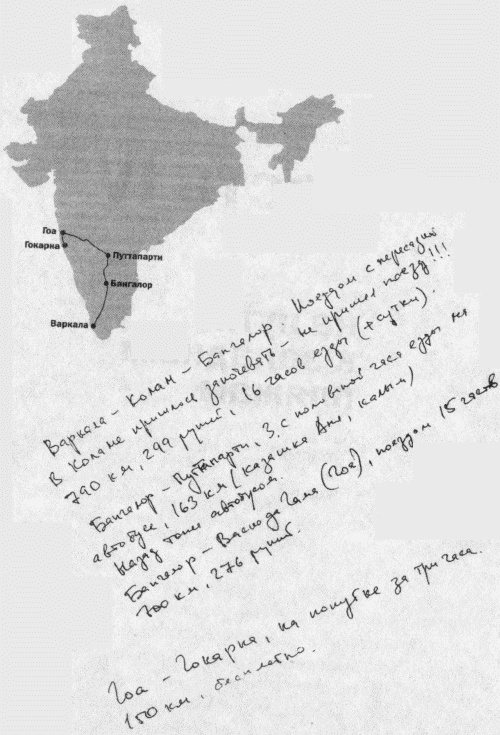 Гоа
Гокарна
Путтапарти
Бангалор
Варкала
Варкала – Колан – Бангелор Поездом с пересадкой
В Колане пришлось заночевать – не пришел поезд!!!
790 км, 299 рупий, 16 часов езды (+ сутки).
Бангелор – Путтапарти, 3 с половиной часа езды на
автобусе, 163 км (казашка Аня, калым)
Назад тоже автобусом.
Бангелор – Васко да Гама (Гоа), поездом 15 часов
700 км, 276 рупий.
Гоа – Гокарна, на попутке за три часа.
150 км, бесплатно.